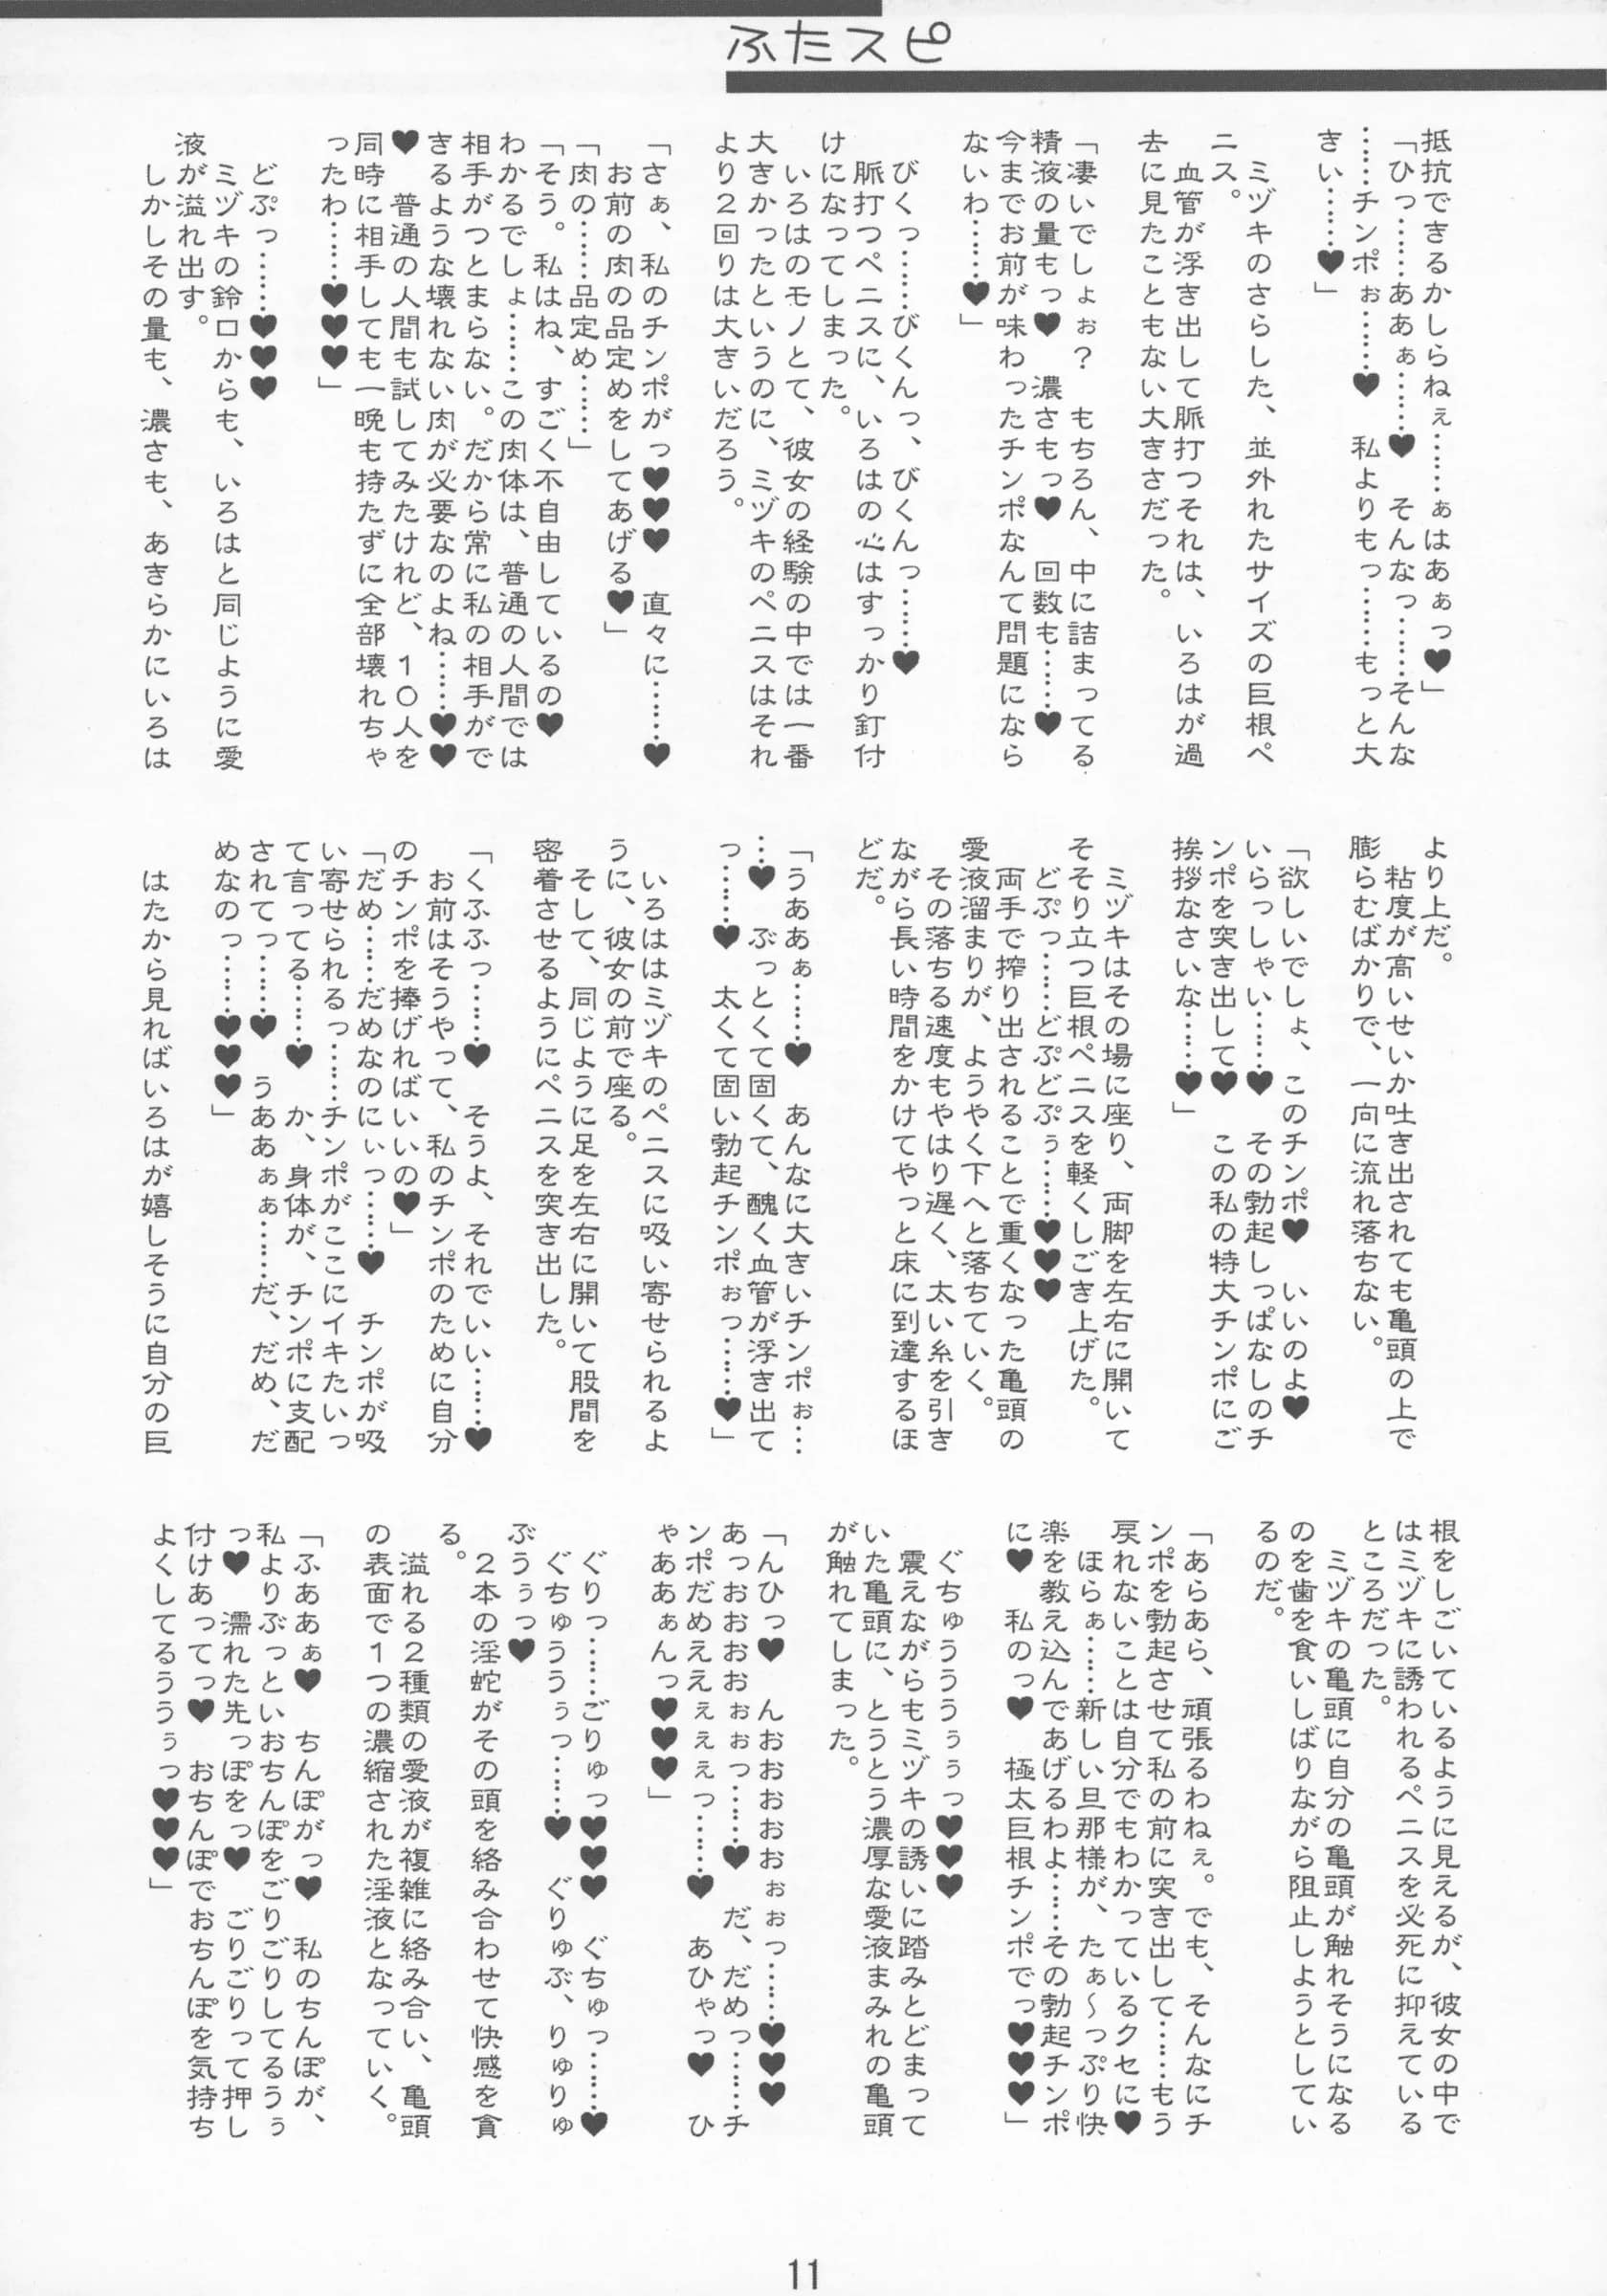 ふたスピ
抵抗できるかしらねぇ……ぁはあぁっ♥」
「ひっ……ああぁ……♥　そんなっ……そんな
……チンポぉ……♥　私よりもっ……もっと大
きい……♥」
　ミヅキのさらした、並外れたサイズの巨根ペ
ニス。
　血管が浮き出して脈打つそれは、いろはが過
去に見たこともない大きさだった。
「凄いでしょぉ？　もちろん、中に詰まってる
精液の量もっ♥　濃さもっ♥　回数も……♥
今までお前が味わったチンポなんて問題になら
ないわ……♥」
　びくっ……びくんっ、びくんっ……♥
　脈打つペニスに、いろはの心はすっかり釘付
けになってしまった。
　いろはのモノとて、彼女の経験の中では一番
大きかったというのに、ミヅキのペニスはそれ
より２回りは大きいだろう。
「さぁ、私のチンポがっ♥♥♥　直々に……♥
　お前の肉の品定めをしてあげる♥」
「肉の……品定め……」
「そう。私はね、すごく不自由しているの♥
わかるでしょ……この肉体は、普通の人間では
相手がつとまらない。だから常に私の相手がで
きるような壊れない肉が必要なのよね……♥♥
♥　普通の人間も試してみたけれど、１０人を
同時に相手しても一晩も持たずに全部壊れちゃ
ったわ……♥♥♥」
　どぷっ……♥♥♥
　ミヅキの鈴口からも、いろはと同じように愛
液が溢れ出す。
　しかしその量も、濃さも、あきらかにいろは
より上だ。
　粘度が高いせいか吐き出されても亀頭の上で
膨らむばかりで、一向に流れ落ちない。
「欲しいでしょ、このチンポ♥　いいのよ♥
いらっしゃい……♥　その勃起しっぱなしのチ
ンポを突き出して♥　この私の特大チンポにご
挨拶なさいな……♥」
　ミヅキはその場に座り、両脚を左右に開いて
そそり立つ巨根ペニスを軽くしごき上げた。
　どぷっ……どぷどぷぅ……♥♥♥
　両手で搾り出されることで重くなった亀頭の
愛液溜まりが、ようやく下へと落ちていく。
　その落ちる速度もやはり遅く、太い糸を引き
ながら長い時間をかけてやっと床に到達するほ
どだ。
「うああぁ……♥　あんなに大きいチンポぉ…
…♥　ぶっとくて固くて、醜く血管が浮き出て
っ……♥　太くて固い勃起チンポぉっ……♥」
　いろははミヅキのペニスに吸い寄せられるよ
うに、彼女の前で座る。
　そして、同じように足を左右に開いて股間を
密着させるようにペニスを突き出した。
「くふふっ……♥　そうよ、それでいい……♥
　お前はそうやって、私のチンポのために自分
のチンポを捧げればいいの♥」
「だめ……だめなのにぃっ……♥　チンポが吸
い寄せられるっ……チンポがここにイキたいっ
て言ってる……♥　か、身体が、チンポに支配
されてっ……♥　うああぁぁ……だ、だめ、だ
めなのっ……♥♥♥」
　はたから見ればいろはが嬉しそうに自分の巨
根をしごいているように見えるが、彼女の中で
はミヅキに誘われるペニスを必死に抑えている
ところだった。
　ミヅキの亀頭に自分の亀頭が触れそうになる
のを歯を食いしばりながら阻止しようとしてい
るのだ。
「あらあら、頑張るわねぇ。でも、そんなにチ
ンポを勃起させて私の前に突き出して……もう
戻れないことは自分でもわかっているクセに♥
　ほらぁ……新しい旦那様が、たぁ～っぷり快
楽を教え込んであげるわよ……その勃起チンポ
に♥　私のっ♥　極太巨根チンポでっ♥♥♥」
　ぐちゅうううぅぅっ♥♥♥
　震えながらもミヅキの誘いに踏みとどまって
いた亀頭に、とうとう濃厚な愛液まみれの亀頭
が触れてしまった。
「んひっ♥　んおおおおおぉぉっ……♥♥♥
あっおおおおぉぉっ……♥　だ、だめっ……チ
ンポだめええぇぇぇっ……♥　あひゃっ♥　ひ
ゃああぁんっ♥♥♥」
　ぐりっ……ごりゅっ♥♥♥　ぐちゅっ……♥
　ぐちゅううぅっ……♥　ぐりゅぶ、りゅりゅ
ぶうぅっ♥
　２本の淫蛇がその頭を絡み合わせて快感を貪
る。
　溢れる２種類の愛液が複雑に絡み合い、亀頭
の表面で１つの濃縮された淫液となっていく。
「ふああぁ♥　ちんぽがっ♥　私のちんぽが、
私よりぶっといおちんぽをごりごりしてるうぅ
っ♥　濡れた先っぽをっ♥　ごりごりって押し
付けあってっ♥　おちんぽでおちんぽを気持ち
よくしてるううぅっ♥♥♥」
11